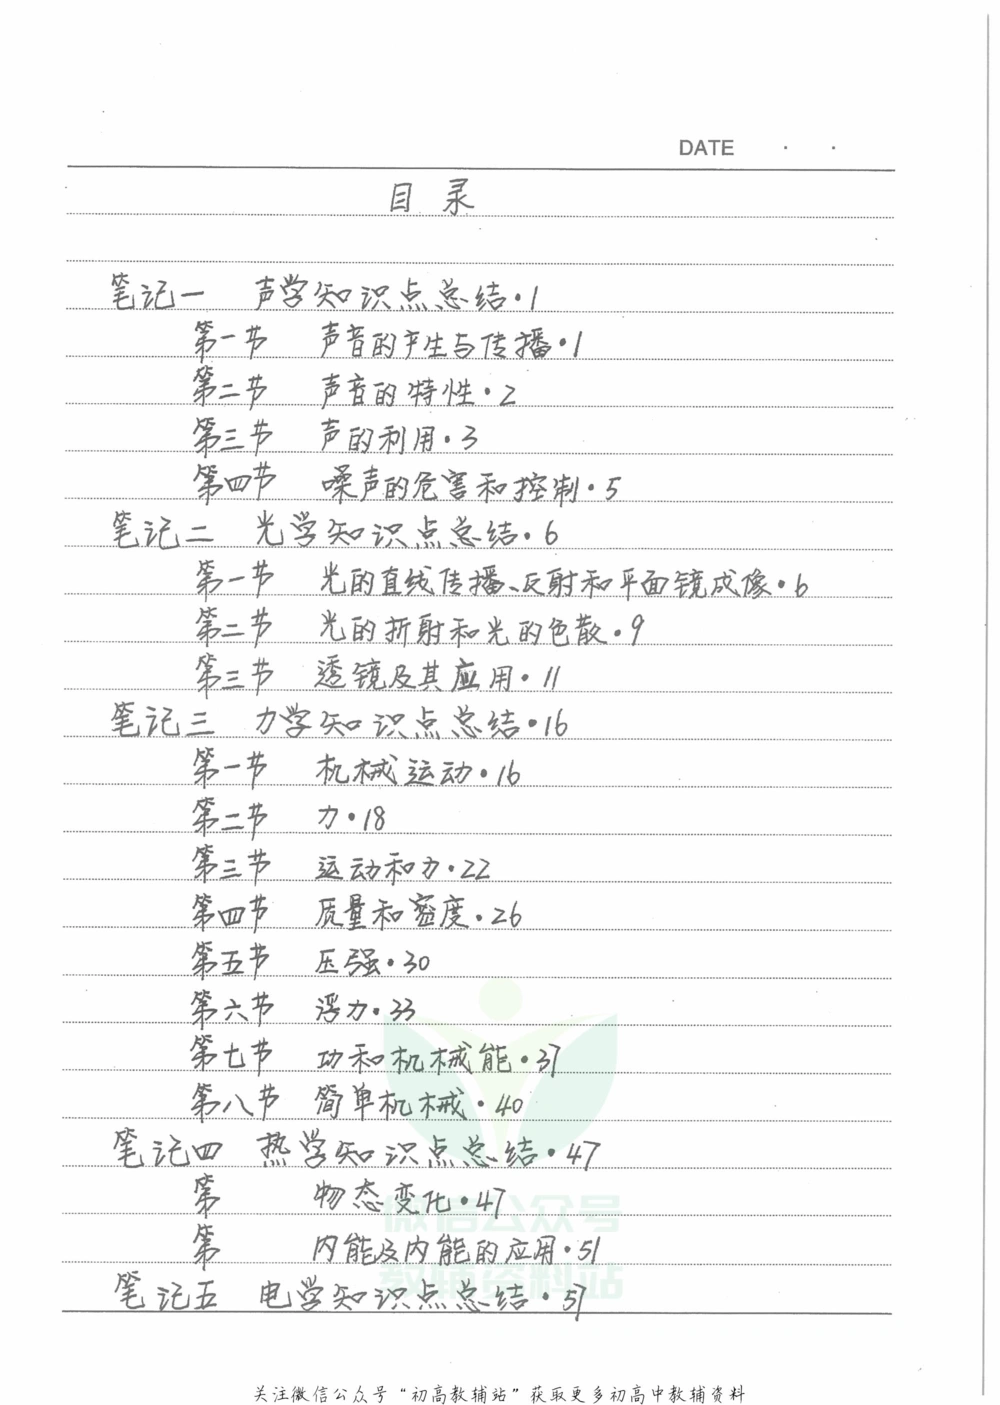 DATE · ·
目 录
笔记一 声学知识点总结·1
第一节 声音的产生与传播·1
第二节 声音的特性·2
第三节 声的利用·3
第四节 噪声的危害和控制·5
笔记二 光学知识点总结·6
第一节 光的直线传播、反射和平面镜成像·6
第二节 光的折射和光的色散·9
第三节 透镜及其应用·11
笔记三 力学知识点总结·16
第一节 机械运动·16
第二节 力·18
第三节 运动和力·22
第四节 质量和密度·26
第五节 压强·30
第六节 浮力·33
第七节 功和机械能·37
第八节 简单机械·40
笔记四 热学知识点总结·47
第 物态变化·47
第 内能及内能的应用·51
笔记五 电学知识点总结·57
微信公众号
教辅资料站
关注微信公众号“初高教辅站”获取更多初高中教辅资料